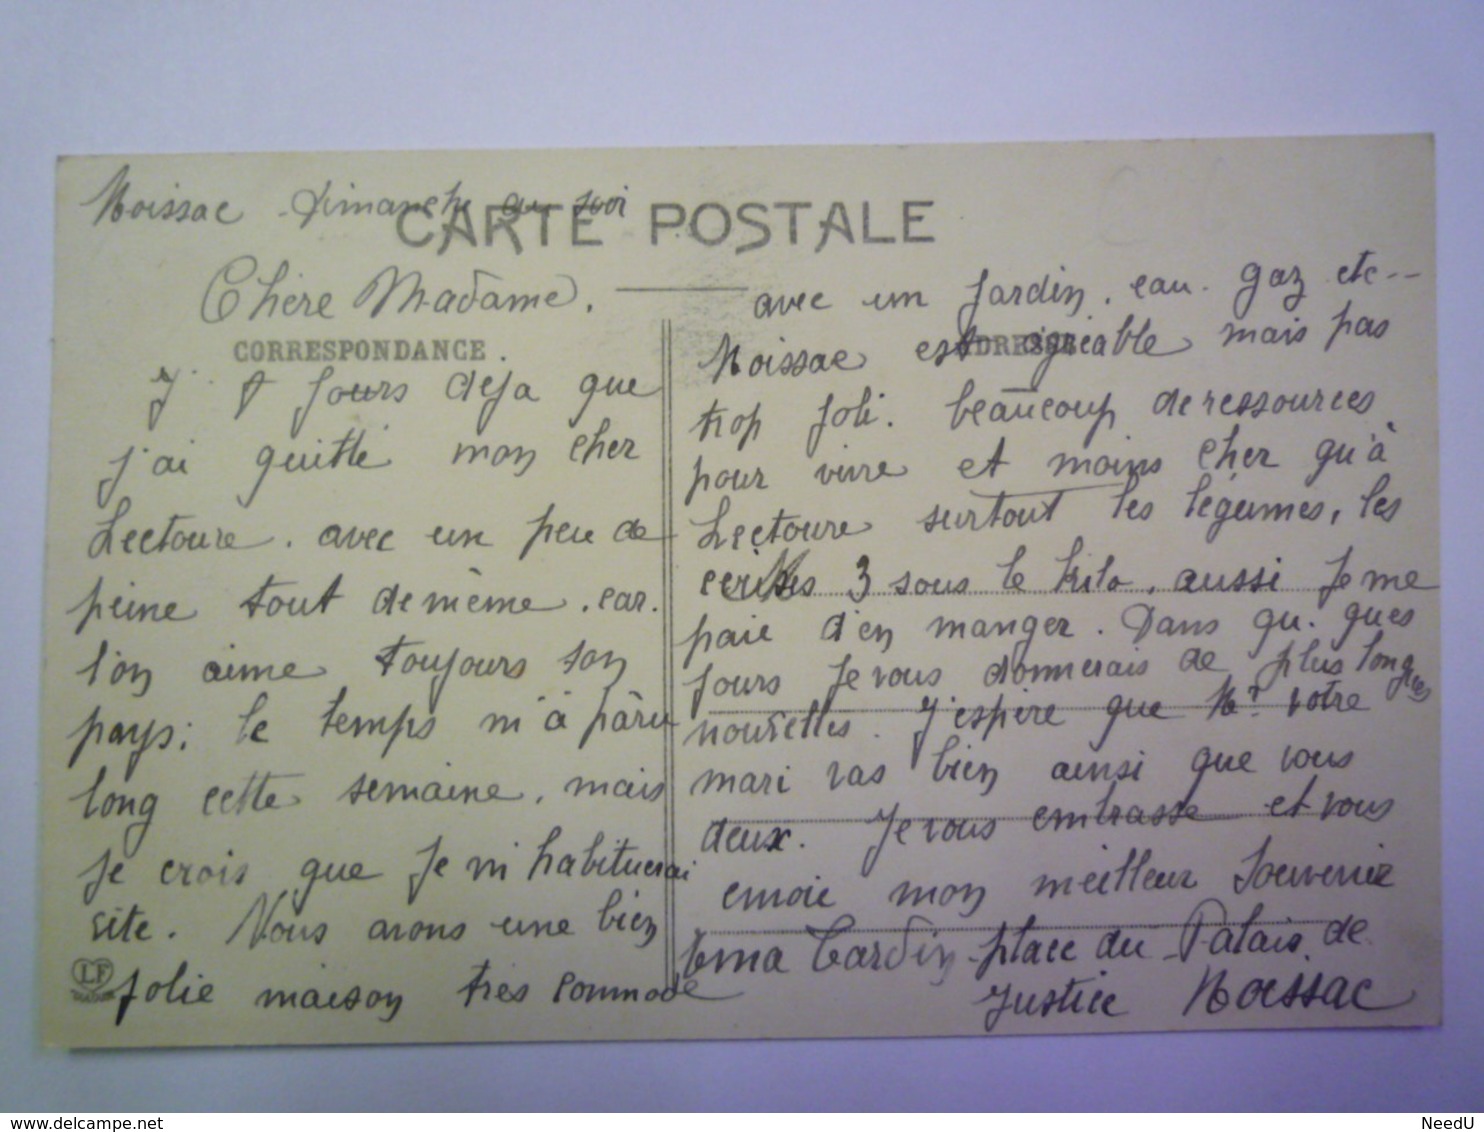 Moissac Dimanche au soir
CARTE POSTALE
Chère Madame.
CORRESPONDANCE.
Jours deja que
j'ai quitté mon cher
Lectoure. avec un peu de
peine tout de même, car.
l'on aime toujours son
pays; le temps m'à pâru
long cette semaine, mais
je crois que je m'habituerai
vite. Nous avons une bien
LF
jolie maison tres commode
avec un jardin, eau. gaz etc--
ADRESSE
Moissac est agréable mais pas
trop joli. beaucoup de ressources
pour vivre et moins cher qu'à
Lectoure surtout les légumes, les
cerises 3 sous le kilo, aussi je me
paie d'en manger. Dans qu. ques
jours je vous donnerais de plus longues
nouvelles. J'espère que Mr. votre
mari vas bien ainsi que vous
deux. Je vous embrasse et vous
envoie mon meilleur souvenir
place du Palais de
Justice Moissac
www.delcampe.net
NeedU